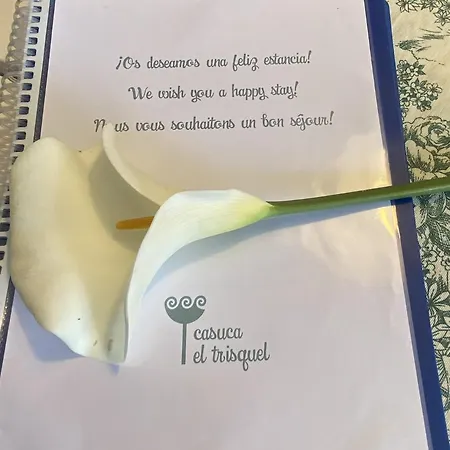 ¡Os deseamos una feliz estancia!
We wish you a happy stay!
Nous vous souhaitons un bon séjour!
casuca
el trisquel